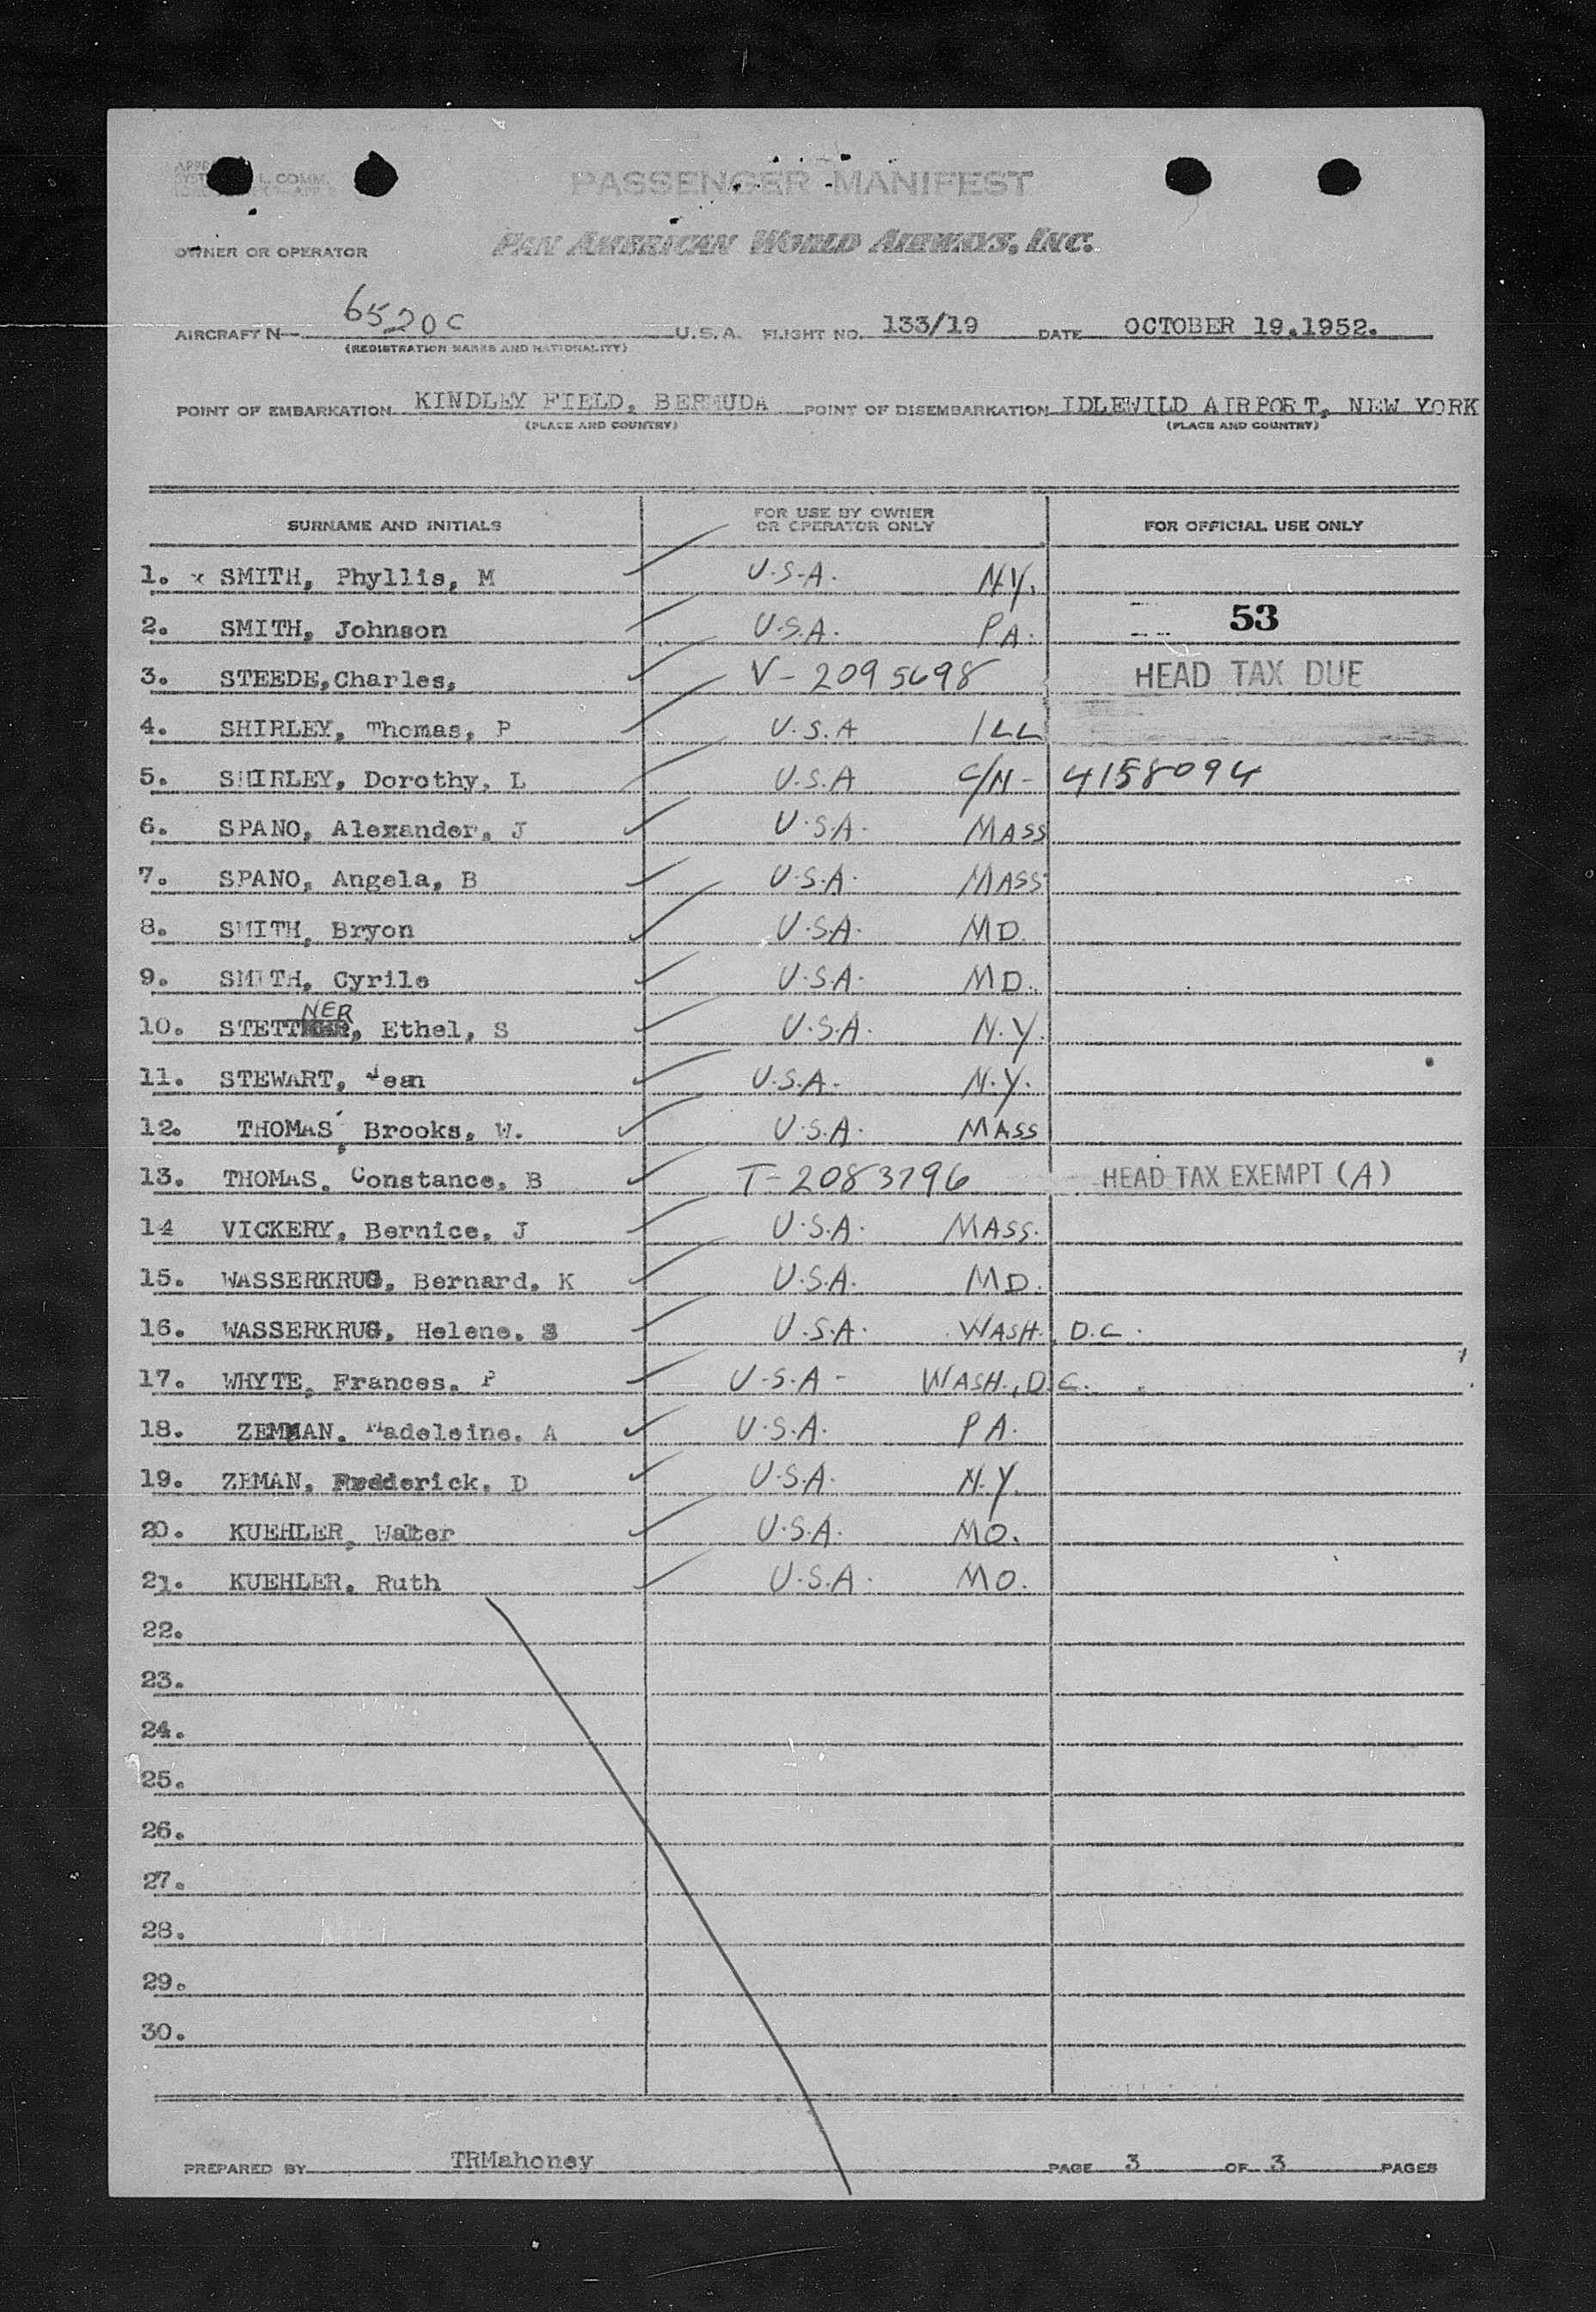 L. COMM.
PASSENGER MANIFEST
OWNER OR OPERATOR PAN AMERICAN WORLD AIRWAYS, INC.
AIRCRAFT N— 6520C U.S.A. FLIGHT NO. 133/19 DATE OCTOBER 19.1952.
(REGISTRATION MARKS AND NATIONALITY)
POINT OF EMBARKATION KINDLEY FIELD, BERMUDA POINT OF DISEMBARKATION IDLEWILD AIRPORT, NEW YORK
(PLACE AND COUNTRY) (PLACE AND COUNTRY)
SURNAME AND INITIALS FOR USE BY OWNER OR OPERATOR ONLY FOR OFFICIAL USE ONLY
1. x SMITH, Phyllis, M U.S.A. N.Y.
2. SMITH, Johnson U.S.A. PA. 53
3. STEEDE,Charles, V-2095698 HEAD TAX DUE
4. SHIRLEY, Thomas, P U.S.A ILL
5. SHIRLEY, Dorothy, L U.S.A C/N- 4158094
6. SPANO, Alexander, J U.S.A. MASS
7. SPANO, Angela, B U.S.A. MASS
8. SMITH, Bryon U.S.A. MD.
9. SMITH, Cyrile U.S.A. MD.
10. STETTNER, Ethel, S U.S.A. N.Y.
11. STEWART, Jean U.S.A. N.Y.
12. THOMAS, Brooks, W. U.S.A. MASS
13. THOMAS, Constance, B T-2083796 HEAD TAX EXEMPT (A)
14 VICKERY, Bernice, J U.S.A. MASS.
15. WASSERKRUG, Bernard, K U.S.A. MD.
16. WASSERKRUG, Helene, S U.S.A. WASH., D.C.
17. WHYTE, Frances, P U.S.A- WASH., D.C.
18. ZEMMAN, Madeleine, A U.S.A. PA.
19. ZEMAN, Frederick, D U.S.A. N.Y.
20. KUEHLER, Walter U.S.A. MO.
21. KUEHLER, Ruth U.S.A. MO.
22.
23.
24.
25.
26.
27.
28.
29.
30.
PREPARED BY TRMahoney PAGE 3 OF 3 PAGES